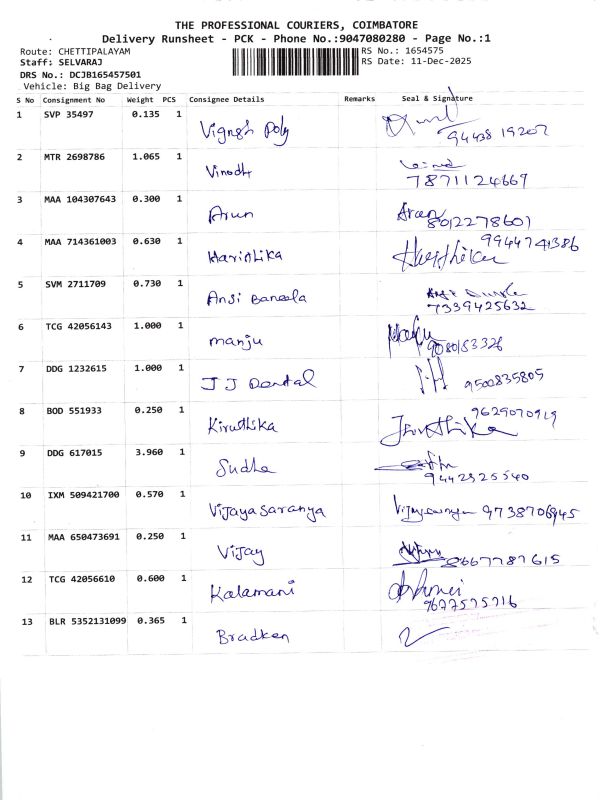 THE PROFESSIONAL COURIERS, COIMBATORE
Delivery Runsheet - PCK - Phone No.:9047080280 - Page No.:1
Route: CHETTIPALAYAM RS No.: 1654575
Staff: SELVARAJ RS Date: 11-Dec-2025
DRS No.: DCJB165457501
Vehicle: Big Bag Delivery
S No Consignment No Weight PCS Consignee Details Remarks Seal & Signature
1 SVP 35497 0.135 1 Vignesh Poly
94438 19207
2 MTR 2698786 1.065 1 Vinodh
7871124669
3 MAA 104307643 0.300 1 Arun Arun
8012278601
4 MAA 714361003 0.630 1 Harinthika 9944741386
5 SVM 2711709 0.730 1 Ansi
7339425632
6 TCG 42056143 1.000 1 manju
9080153326
7 DDG 1232615 1.000 1 JJ Dental
9500835805
8 BOD 551933 0.250 1 Kiruthika
9629070919
9 DDG 617015 3.960 1 Sudha
9442325540
10 IXM 509421700 0.570 1 Vijayasaranya 9738706945
11 MAA 650473691 0.250 1 Vijay
12 TCG 42056610 0.600 1 Kalamani
9677575716
13 BLR 5352131099 0.365 1 Bradken